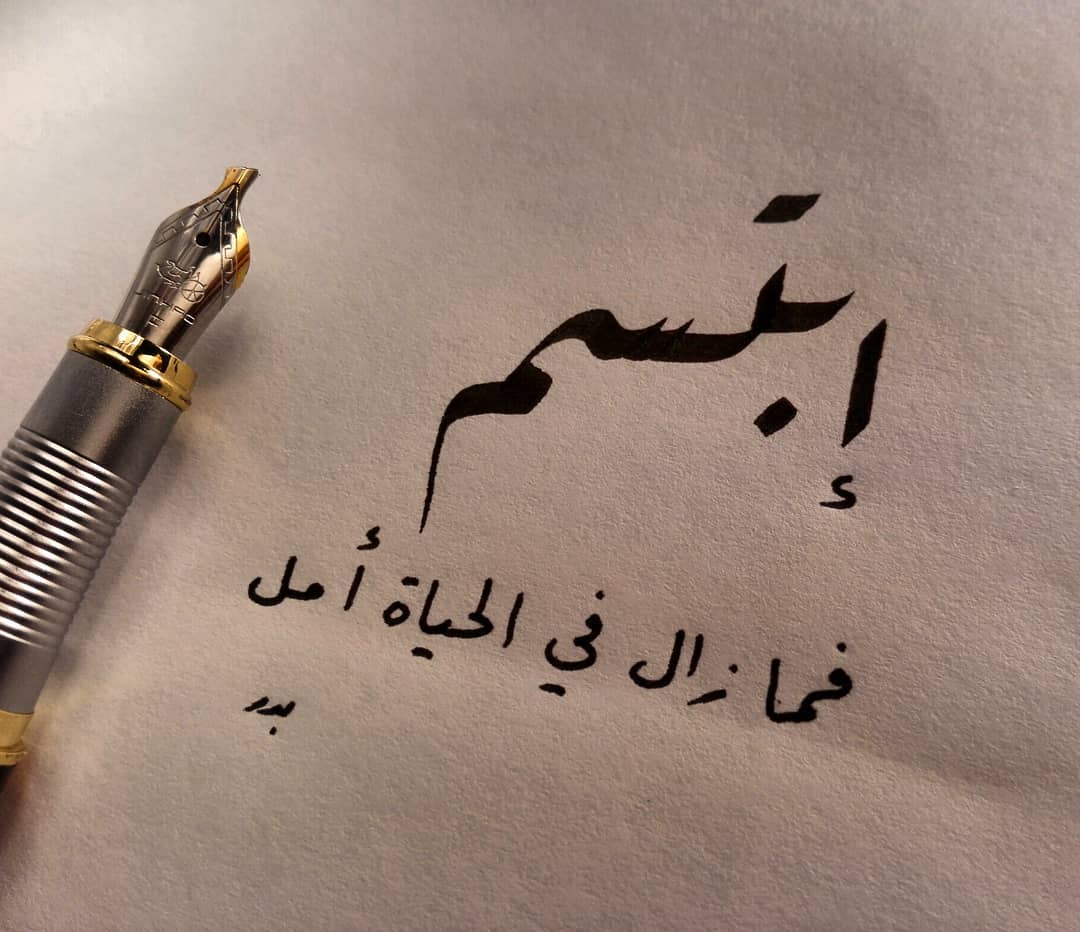 إبتسم
فما زال في الحياة أمل
بدر